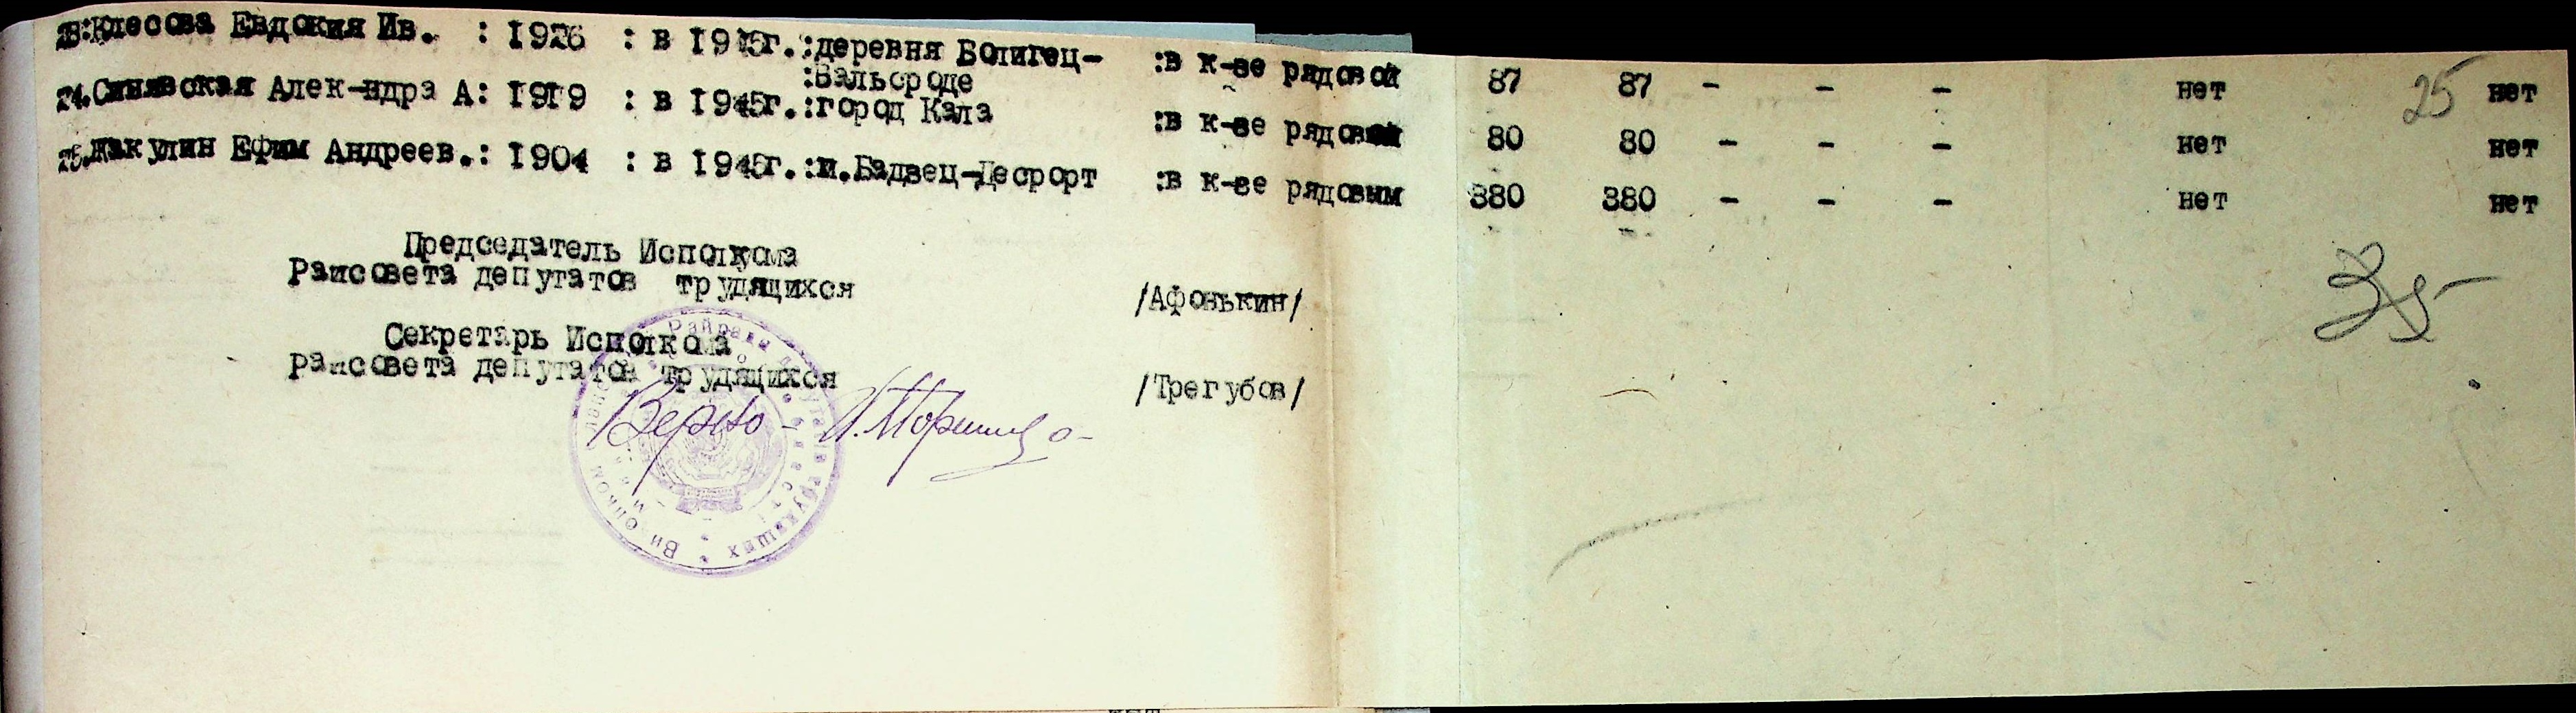 23:Клесова Евдокия Ив. : 1926 : в 1945г.:деревня Болигец- :в к-зе рядовой 87 87 - - - нет нет
:Вальсроде
24.Синявская Алек-ндра А: 1919 : в 1945г.:город Кала :в к-зе рядовой 80 80 - - - нет нет
25.Жакулин Ефим Андреев.: 1904 : в 1945г.:м.Бадвец-Десрорт :в к-зе рядовым 380 380 - - - нет нет
25
Председатель Исполкома
Райсовета депутатов трудящихся /Афонькин/
Секретарь Исполкома
райсовета депутатов трудящихся /Трегубов/
Верно -